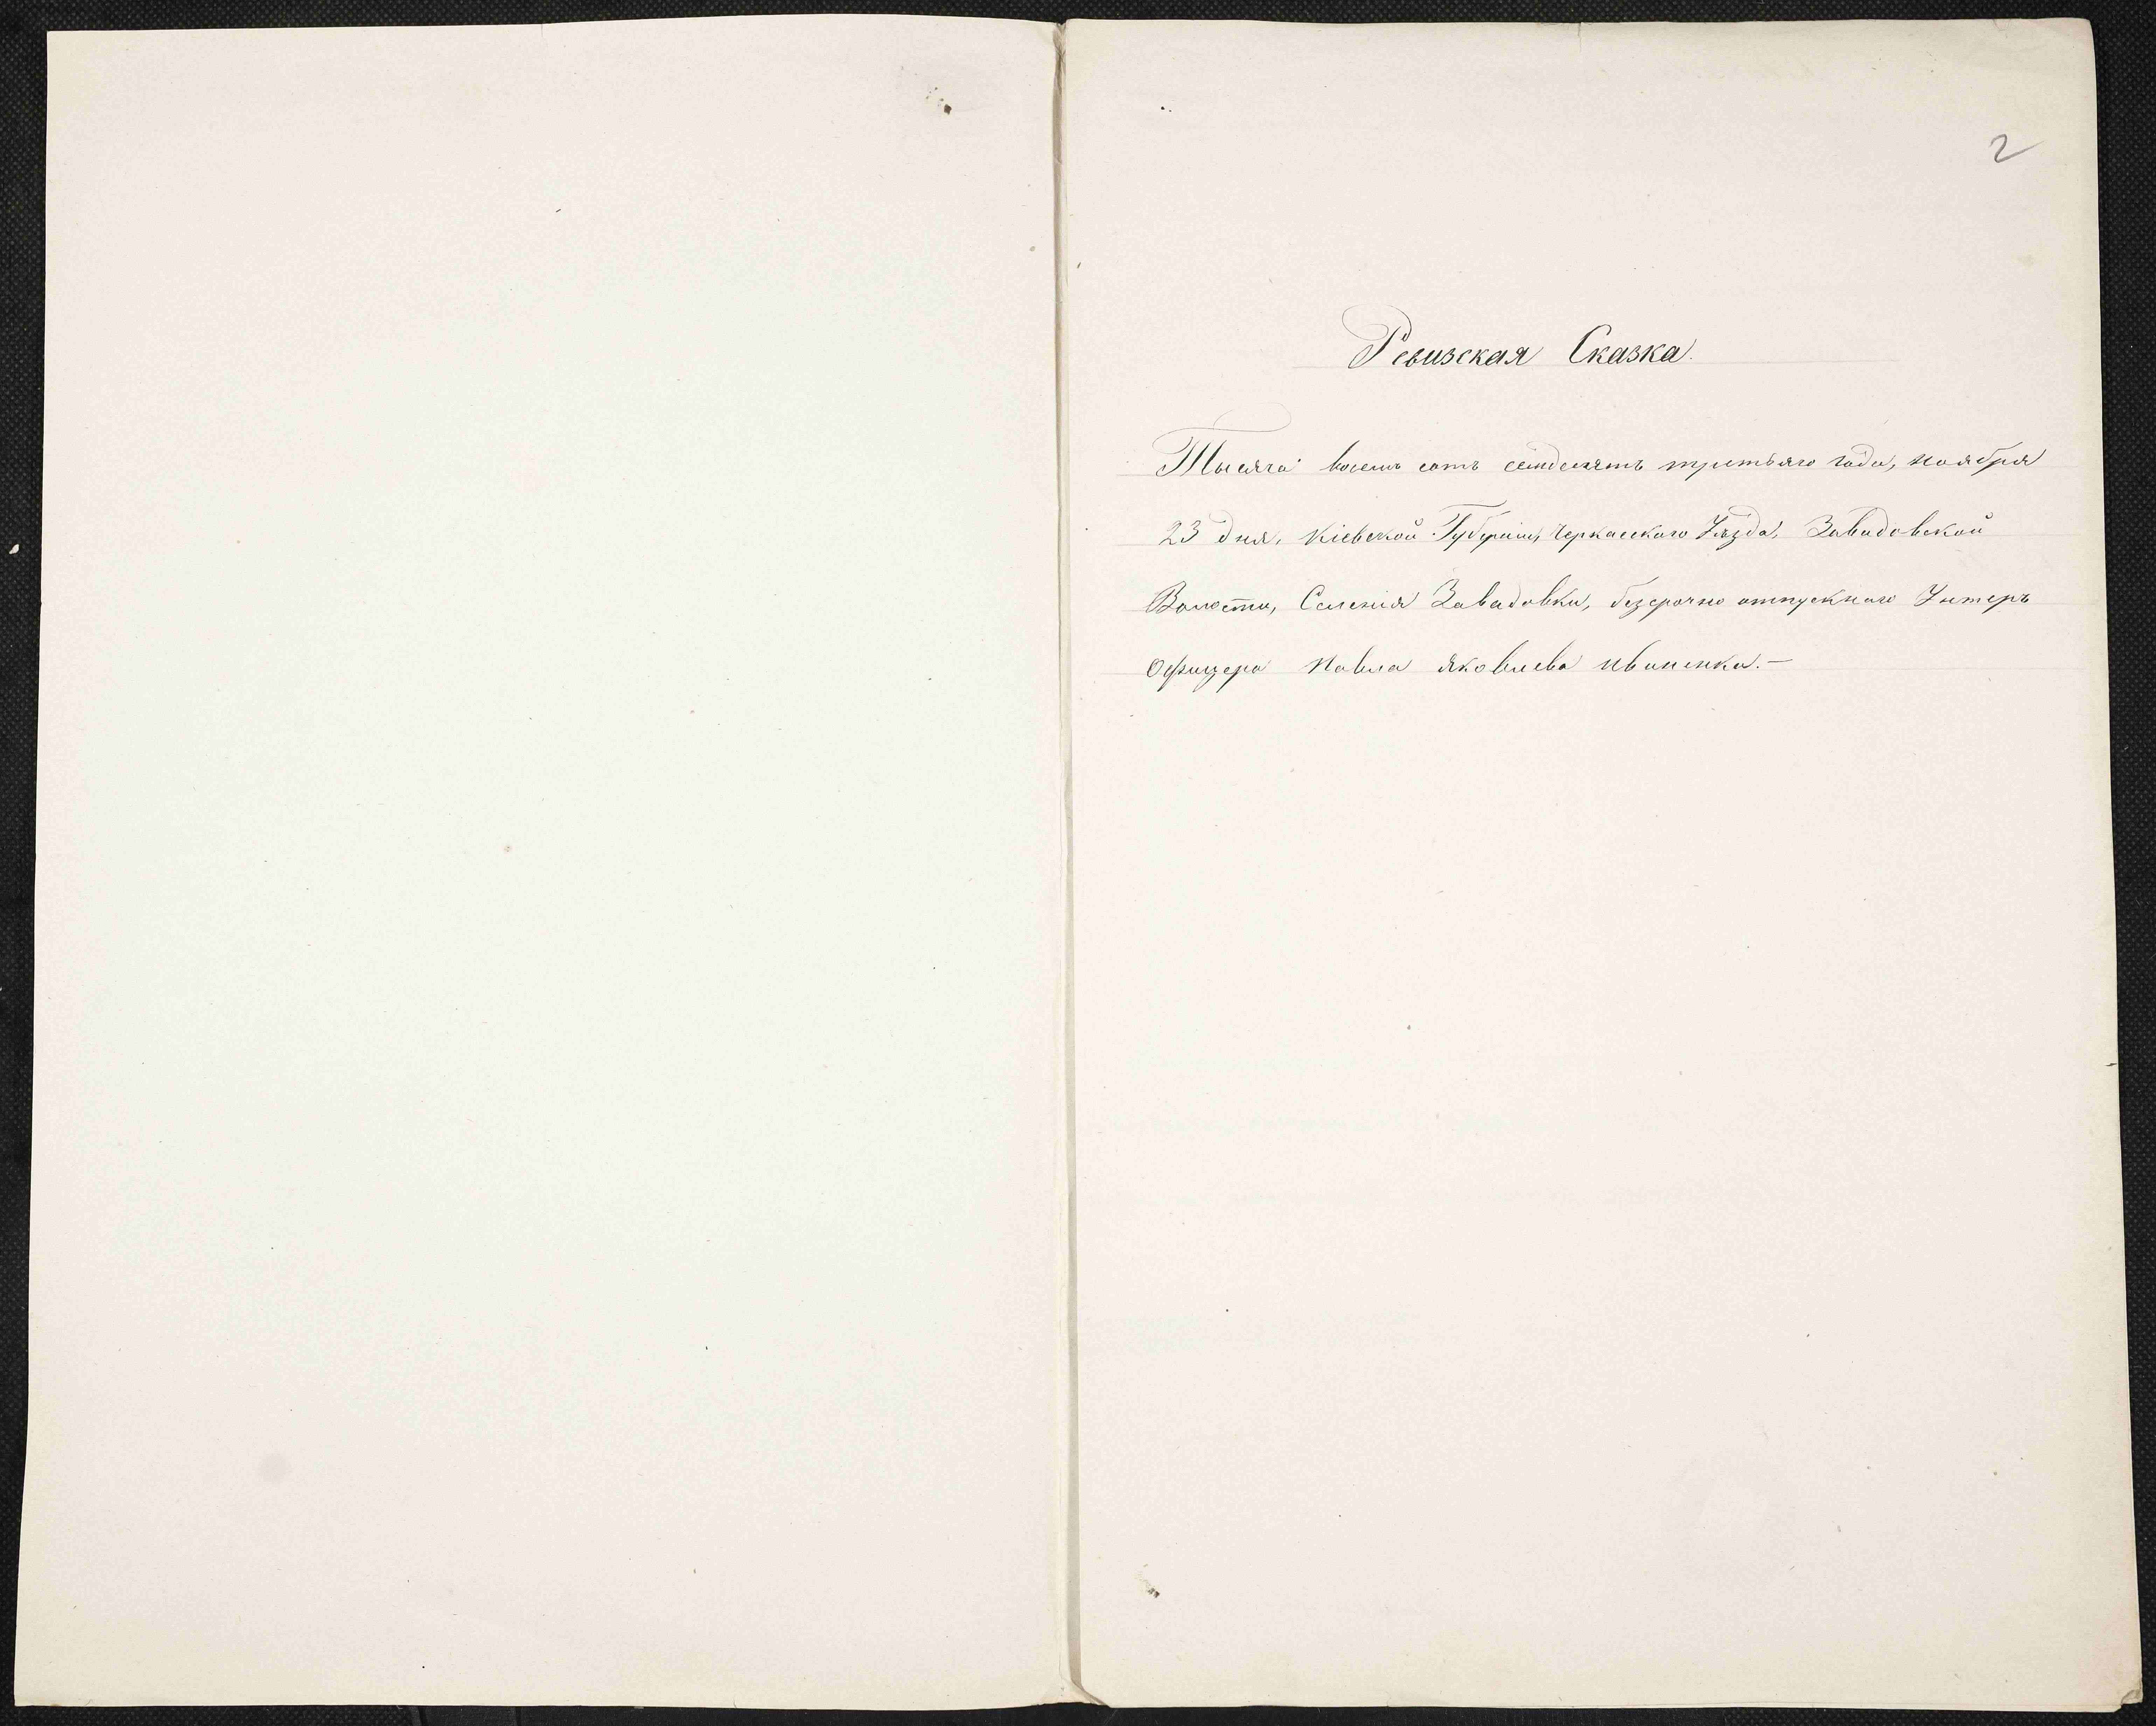 2
Ревизская Сказка.
Тысяча восемь сотъ семдесятъ третьяго года, ноября
23 дня, Кіевской Губерніи, Черкасскаго Уѣзда, Завадовской
Волости, Селенія Завадовки, безсрочно отпускнаго Унтеръ
Офицера Павла Яковлева Иваненка.—